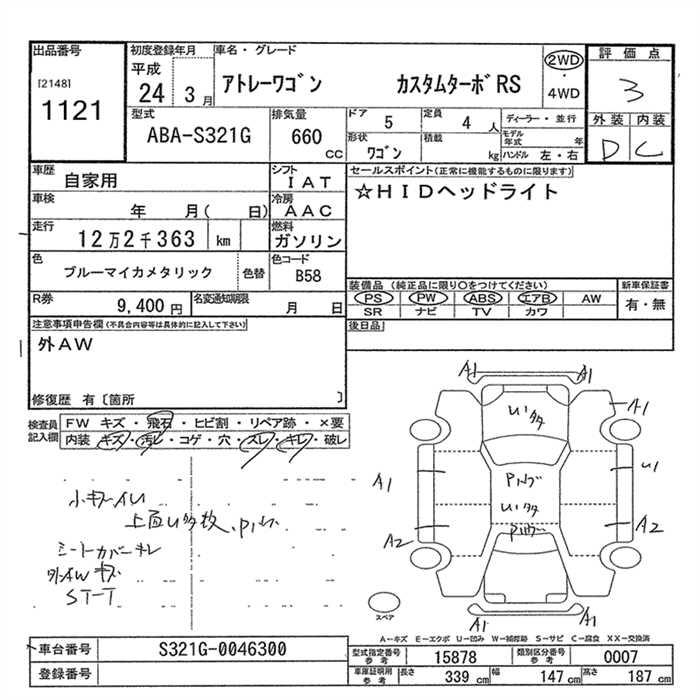 出品番号
[2148]
1121
初度登録年月
平成
24 3月
車名・グレード
アトレーワゴン カスタムターボRS
2WD
・
4WD
評価点
3
外装 内装
D C
型式
ABA-S321G
排気量
660
CC
ドア
5
定員
4人
形状
ワゴン
積載
kg
ディーラー・並行
モデル年式 年
ハンドル 左・右
車歴
自家用
シフト
IAT
車検
年 月( 日)
冷房
AAC
走行
12万2千363 km
燃料
ガソリン
色
ブルーマイカメタリック
色替
色コード
B58
R券
9,400円
名変通知期限
月 日
セールスポイント(正常に機能するものに限ります)
☆HIDヘッドライト
装備品(純正品に限り○をつけてください)
PS PW ABS エアB AW
SR ナビ TV カワ
新車保証書
有・無
後日品
注意事項申告欄(不具合内容等は具体的に記入して下さい)
外AW
修復歴 有〔箇所 〕
検査員記入欄
FW キズ・飛石・ヒビ割・リペア跡・×要
内装 キズ・汚レ・コゲ・穴・スレ・キレ・破レ
シートカバーキレ
外AWキズ
ST-T
A1 A1
A1
A1
U1
A2
A2
A1 A1
スペア
A-キズ E-エクボ U-凹み W-補修跡 S-サビ C-腐食 XX-交換済
車台番号
S321G-0046300
登録番号
型式指定番号参考
15878
類別区分番号参考
0007
車庫証明用参考
長さ 339cm
幅 147cm
高さ 187cm